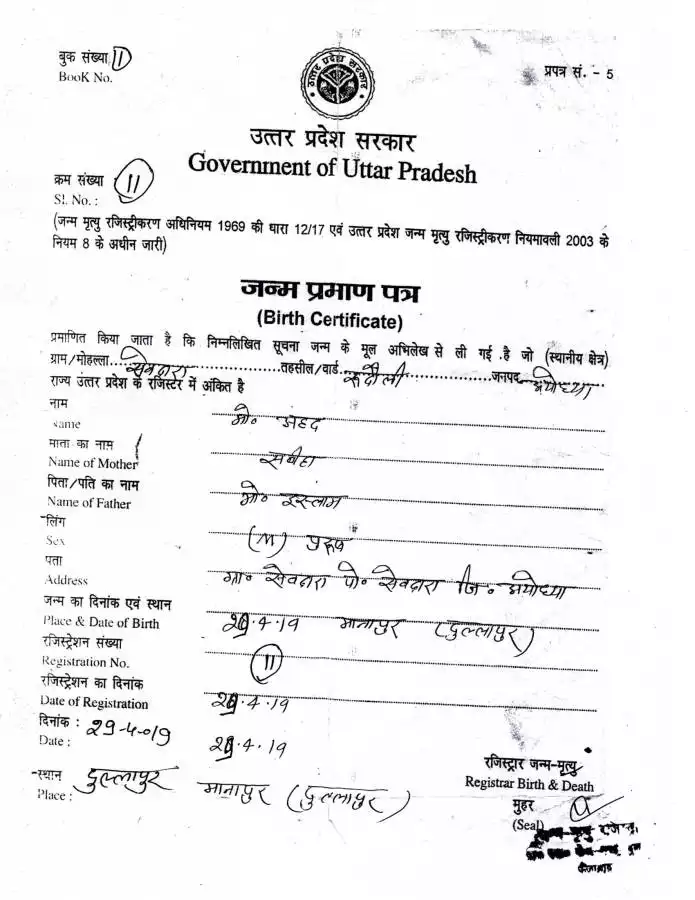 बुक संख्या 11
BooK No.
प्रपत्र सं. - 5
उत्तर प्रदेश सरकार
उत्तर प्रदेश सरकार
Government of Uttar Pradesh
क्रम संख्या 11
Sl. No. :
(जन्म मृत्यु रजिस्ट्रीकरण अधिनियम 1969 की धारा 12/17 एवं उत्तर प्रदेश जन्म मृत्यु रजिस्ट्रीकरण नियमावली 2003 के
नियम 8 के अधीन जारी)
जन्म प्रमाण पत्र
(Birth Certificate)
प्रमाणित किया जाता है कि निम्नलिखित सूचना जन्म के मूल अभिलेख से ली गई है जो (स्थानीय क्षेत्र)
ग्राम/मोहल्ला तहसील/वार्ड रूदौली जनपद अयोध्या
राज्य उत्तर प्रदेश के रजिस्टर में अंकित है
नाम
Name मो० अहद
माता का नाम
Name of Mother
पिता/पति का नाम
Name of Father मो० इस्लाम
लिंग
Sex (M) पुरुष
पता
Address ग्रा० पो० जि० अयोध्या
जन्म का दिनांक एवं स्थान
Place & Date of Birth मानापुर (दुल्लापुर)
रजिस्ट्रेशन संख्या
Registration No. 11
रजिस्ट्रेशन का दिनांक
Date of Registration
दिनांक :
Date :
रजिस्ट्रार जन्म-मृत्यु
स्थान दुल्लापुर
Place : मानापुर (दुल्लापुर)
Registrar Birth & Death
मुहर
(Seal)